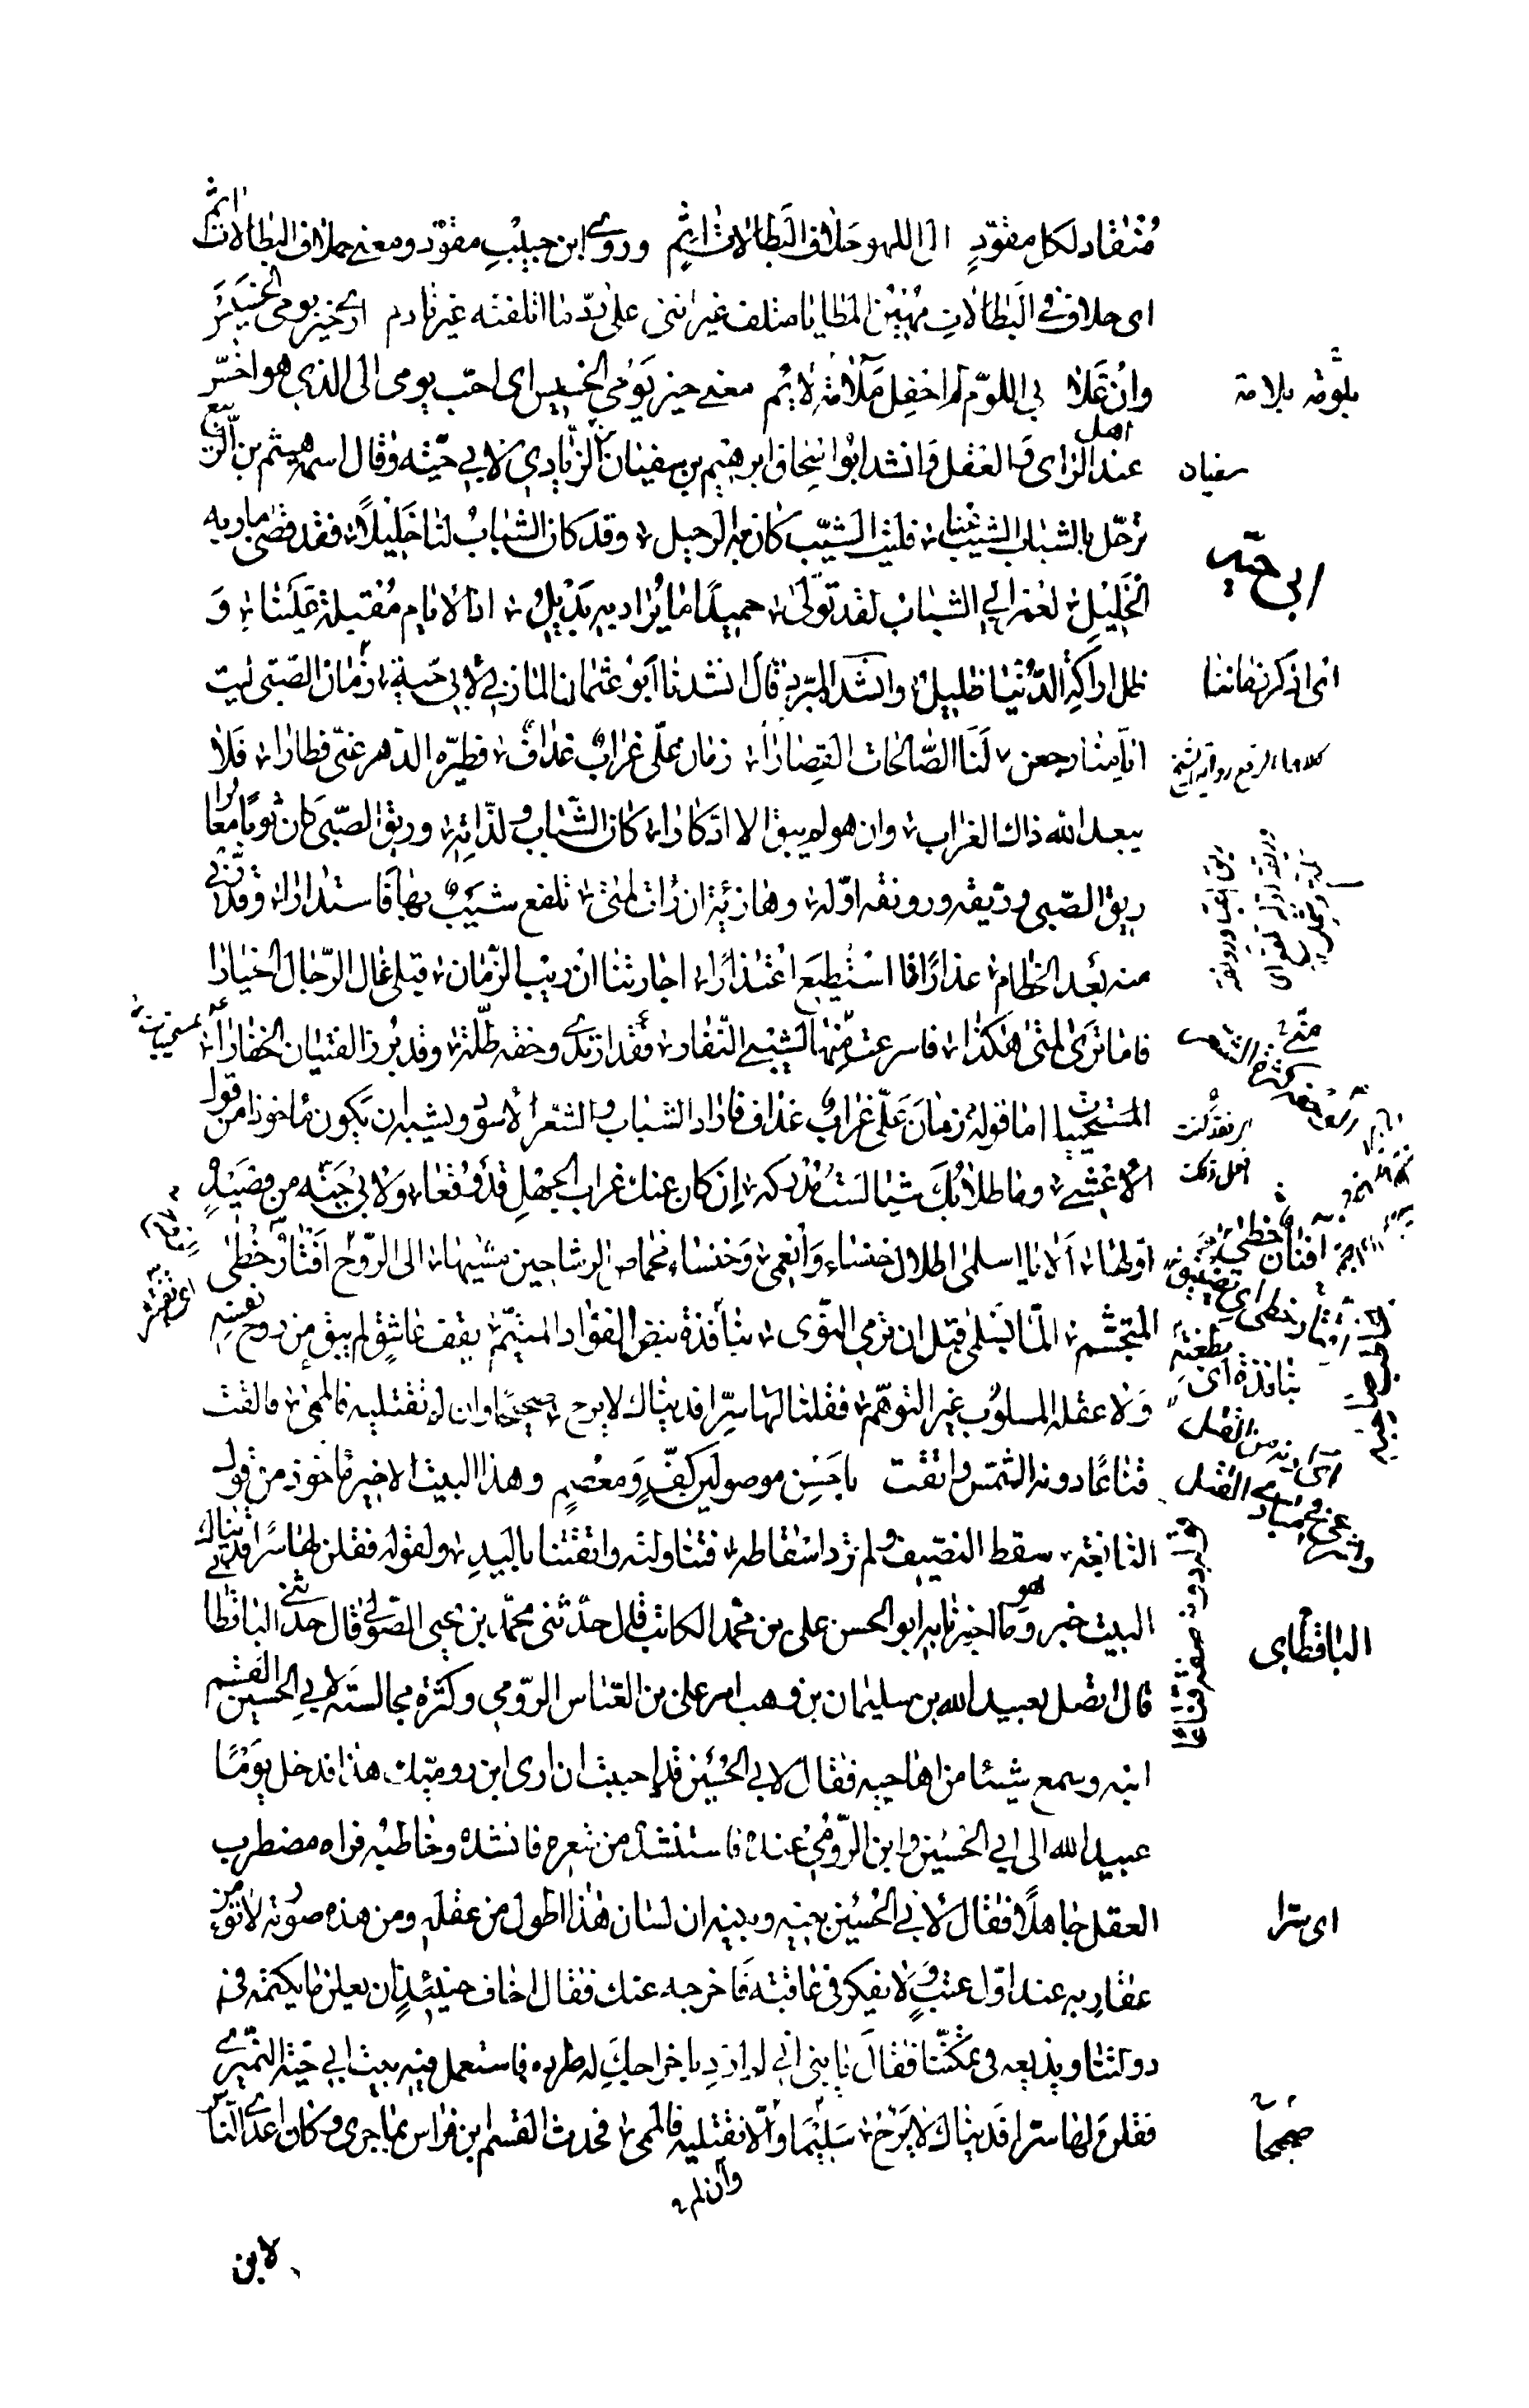 مُنقاد لكل مفوّدٍ الى اللهو حلاف البَطالات اثِمِ وروى ابن حبيب مفوّد ومعنى حلاف البطالات اثم
اى حلاف فى البَطالات مُهين المطايا متلف غير اننى على بدّ ما اتلفته غير نادم ارى خير يومى الخسيسَ
وان غلا بى اللوم لم احفِل مَلامة لايم معنى خير يومي الخسيس اى احب يومى الى الذى هو اخسّ
عند اهل الراى و العقل وانشد ابو اسحاق ابرهيم بن سفيان الزيادي لابى حيّة وقال اسمه هيثم بن الربيع
ترحّل بالشباب الشيب عنا فليت الشيب كان به الرحيل وقد كان الشباب لنا خليلاً فقد قضى ماربه
الخَليل لعمر ابى الشباب لقد تولّى حميدًا ما يُراد به بَديل اذ الايام مُقبلة عَلَينا وَ
ظل اراكة الدُّنيا ظليل وانشد المبرد قال انشدنا ابو عثمان المازنى لابى حَيّة زمان الصّبى ليت
ايامنا رجعن لَنا الصّالحات القِصارا زمان علىّ غراب غداف فطيّره الدهر عنّى فطارا فلا
يبعد الله ذاك الغراب وان هو لم يبق الا ادّكارا كان الشباب ولذّاته وريق الصبى كان ثوبًا معارا
ريق الصبى وريقه ورونقه اوّله وهازئة ان رات لمتى تلفع شيب بها فاستدارا وقلّدنى
منه بعد الخطام عذارًا فما استطيع اعتذارًا اجارتنا ان ريب الزمان قبلى غال الرّجال الخيارا
فاما ترى لمتى هكذا فاسرعت منها لشيبى النفار فقد ارتدى وحفه طلّة وقد يُبرز الفتيان الخفارا
المستحييات اما قوله زمان علىّ غراب غداف فاراد الشباب والشعر الاسود ويشبه ان يكون ماخوذا من قول
الاعشى وما طلابك شيا لست مدركه إن كان عنك غراب الجهل قد وقعا ولابى حَيّة من قصيدٍ
اوّلها الا يا اسلمى اطلال خنساء وانعمى وخنساء مخماص الوشاحين مشيها الى الروح افنان خُطى
المتجشّم المّا بسلمى قبل ان ترمى النّوى بنافذة نبض الفؤاد المتيّم يقف عاشق لم يبق من روح نفسه
وَلا عقله المسلوب غير التوهّم فقلنا لها سرّا فديناك لا يرح صحيحًا وان لم تقتليه فالممى فالقت
قناعًا دونه الشمس واتقت باحسن موصولين كفٍّ وَمعصمٍ وهذا البيت الاخير ماخوذ من قول
النابغة سقط النصيف ولم ترد اسقاطه فتناولته واتقتنا باليدِ ولقوله فقلن لها سرًا فديناك
البيت خبر وهو ما اخبرنا به ابو الحسن على بن محمد الكاتب قال حدّثنى محمّد بن يحيى الصّولى قال حدثنى الباقطائى
قال اتصل بعبيد الله بن سليمان بن وهب امر على بن العباس الرّومى وكثرة مجالسته لابى الحسين القسم
ابنه وسمع شيئا من اهاجيه فقال لابى الحُسين قد احببت ان ارى ابن روميّك هذا فدخل يَوْمًا
عبيد الله الى ابى الحُسين وابن الرّومى عنده فاستنشده من شعره فانشده وخاطبه فراه مضطرب
العقل جاهلاً فقال لابى الحُسين بينه وبينه ان لسان هذا اطول من عقله ومن هذه صورته لا تومن
عقاربه عند اوّل عتب ولا يفكر فى عاقبته فاخرجه عنك فقال اخاف حينئذٍ ان يعلن ما يكتمه فى
دولتنا ويذيعه فى تمكننا فقال يا بنى انى لم ارد باخراجك له طرده فاستعمل فيه بيت ابى حيّة النميرى
فقلن لها سرّا فديناك لا يَرُحْ سَليمًا والّا تقتليه فالممى فحدث القسم ابن فراس بما جرى وكان اعدى الناس
وان لم
لابن
بلومة بلامة
سفيان
ابى حيّة
اى اذكر زماننا
كلاهما بالرفع رواية الشيخ
افنان خطى
بنافذة اى بطعنة
الباقطاى
دونه صفة قناعًا
اى سرا
صحيحا